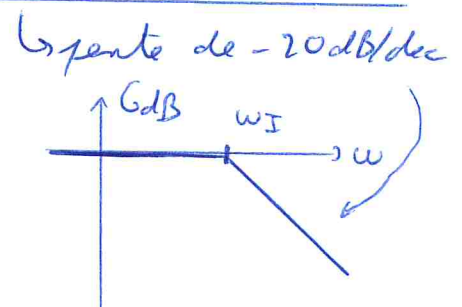 ↳ pente de -20dB/dec
GdB
ωI
ω